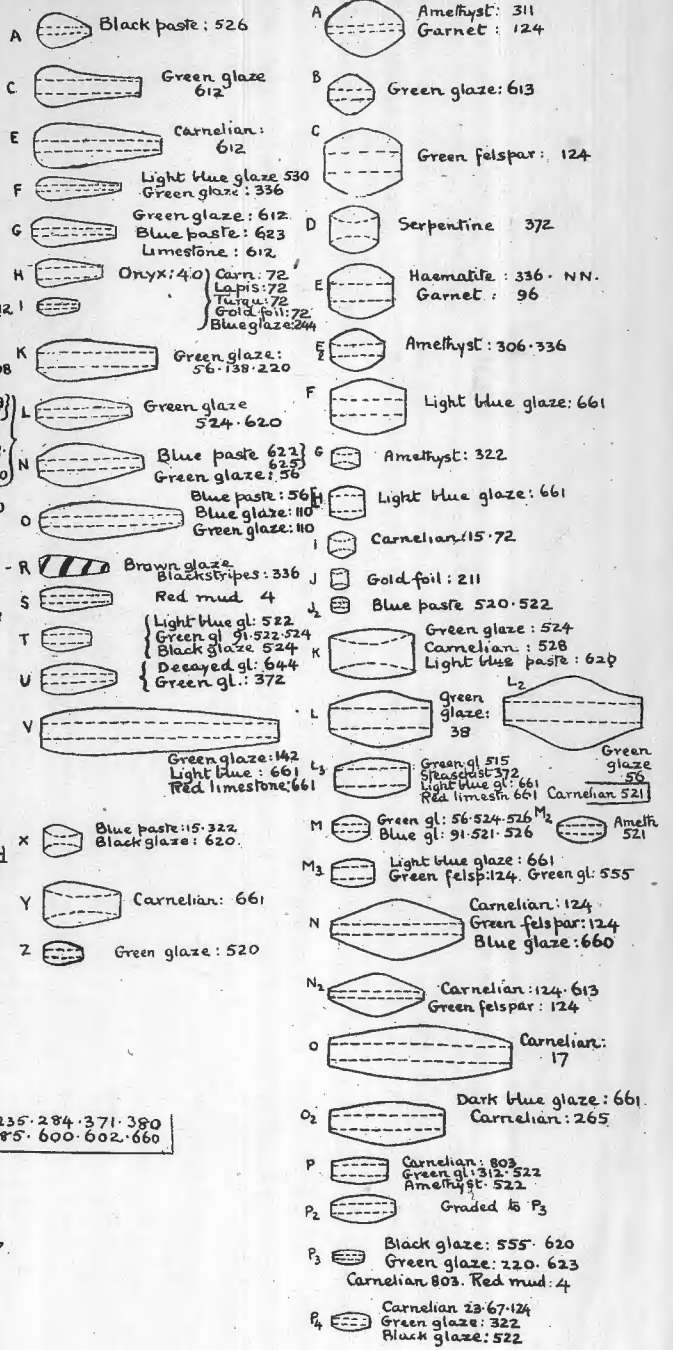 A Black paste: 526
C Green glaze
612
E Carnelian:
612
F Light blue glaze 530
Green glaze: 336
G Green glaze: 612
Blue paste: 623
Limestone: 612
H Onyx: 40
Carn: 72
Lapis: 72
I Turqu: 72
Gold foil: 72
Blue glaze: 244
K Green glaze:
56·138·220
L Green glaze
524·620
N Blue paste 622
625
Green glaze: 56
O Blue paste: 56
Blue glaze: 110
Green glaze: 110
R Brown glaze
Blackstripes: 336
S Red mud 4
T Light blue gl: 522
Green gl 91·522·524
Black glaze 524
U Decayed gl: 644
Green gl.: 372
V
Green glaze: 142
Light blue: 661
Red limestone: 661
X Blue paste: 15·322
Black glaze: 620.
Y Carnelian: 661
Z Green glaze: 520
235·284·371·380
85·600·602·660
A Amethyst: 311
Garnet: 124
B Green glaze: 613
C Green felspar: 124
D Serpentine 372
E Haematite: 336· NN.
Garnet: 96
E2 Amethyst: 306·336
F Light blue glaze: 661
G Amethyst: 322
H Light blue glaze: 661
I Carnelian: 15·72
J Gold foil: 211
J2 Blue paste 520·522
K Green glaze: 524
Carnelian: 528
Light blue paste: 620
L green
glaze:
38
L2
Green
glaze
56
L3 Green gl 515
Steaschist 372
Light blue gl: 661
Red limestn 661
Carnelian 521
M Green gl: 56·524·526
Blue gl: 91·521·526
M2 Ameth
521
M3 Light blue glaze: 661
Green felsp: 124. Green gl: 555
N Carnelian: 124
Green felspar: 124
Blue glaze: 660
N2 Carnelian: 124·613
Green felspar: 124
O Carnelian:
17
O2 Dark blue glaze: 661
Carnelian: 265
P Carnelian: 803
Green gl: 312·522
Amethyst· 522
P2 Graded to P3
P3 Black glaze: 555· 620
Green glaze: 220· 623
Carnelian 803. Red mud: 4
P4 Carnelian 23·67·124
Green glaze: 322
Black glaze: 522